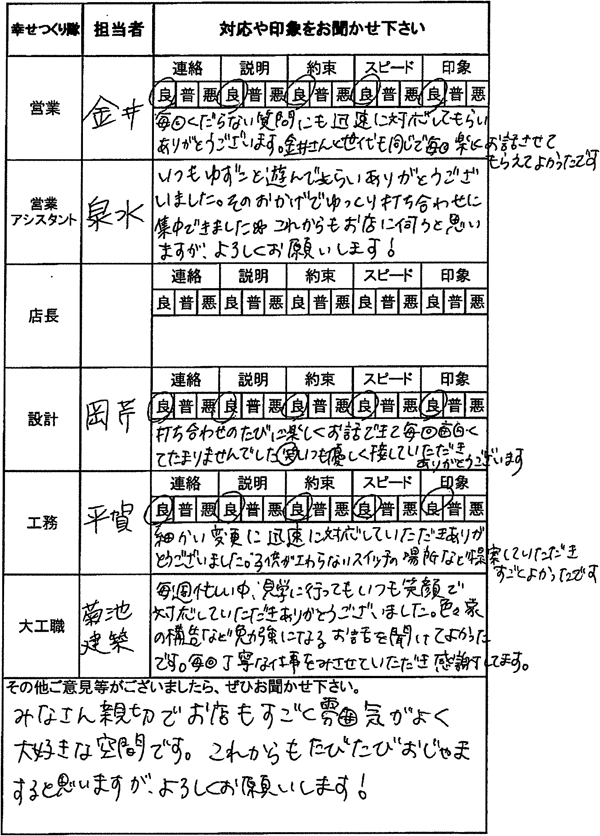 幸せつくり隊 担当者 対応や印象をお聞かせ下さい
連絡 説明 約束 スピード 印象
良 普 悪 良 普 悪 良 普 悪 良 普 悪 良 普 悪
営業 金井
毎回くだらない質問にも迅速に対応してもらい
ありがとうございます。金井さんと世代も同じで毎回楽しくお話させて
もらえてよかったです
営業
アシスタント 泉水
いつもゆずこと遊んでもらいありがとうござ
いました。そのおかげでゆっくり打ち合わせに
集中できました これからもお店に伺うと思い
ますが、よろしくお願いします!
連絡 説明 約束 スピード 印象
店長 良 普 悪 良 普 悪 良 普 悪 良 普 悪 良 普 悪
連絡 説明 約束 スピード 印象
良 普 悪 良 普 悪 良 普 悪 良 普 悪 良 普 悪
設計 岡芹
打ち合わせのたびに楽しくお話できて毎回面白く
てたまりませんでした いつも優しく接していただき
ありがとうございます
連絡 説明 約束 スピード 印象
良 普 悪 良 普 悪 良 普 悪 良 普 悪 良 普 悪
工務 平賀
細かい変更に迅速に対応していただきありが
とうございました。子供がさわらないスイッチの場所など提案していただき
すごくよかったです
大工職 菊池
建築
毎週忙しい中、見学に行ってもいつも笑顔で
対応していただきありがとうございました。色々家
の構造など勉強になるお話を聞けてよかった
です。毎回丁寧な仕事をみさせていただき感謝してます。
その他ご意見等がございましたら、ぜひお聞かせ下さい。
みなさん親切でお店もすごく雰囲気がよく
大好きな空間です。これからもたびたびおじゃま
すると思いますが、よろしくお願いします!